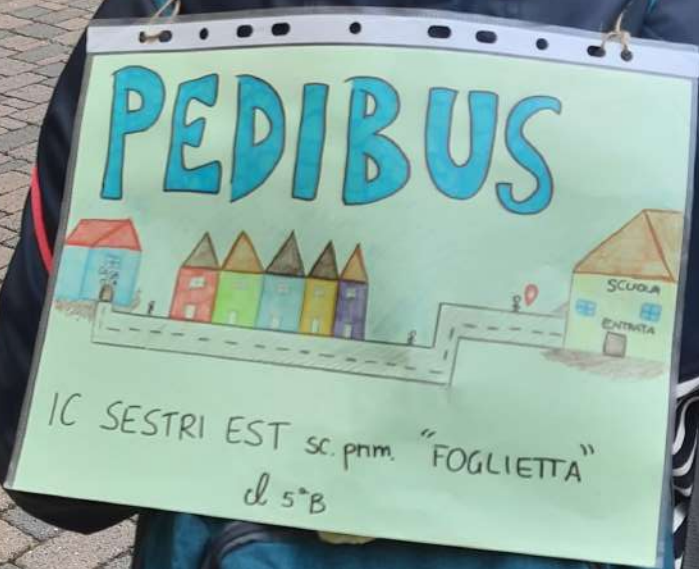 PEDIBUS
CASA
SCUOLA
ENTRATA
IC SESTRI EST sc. prim. "FOGLIETTA"
cl 5ªB